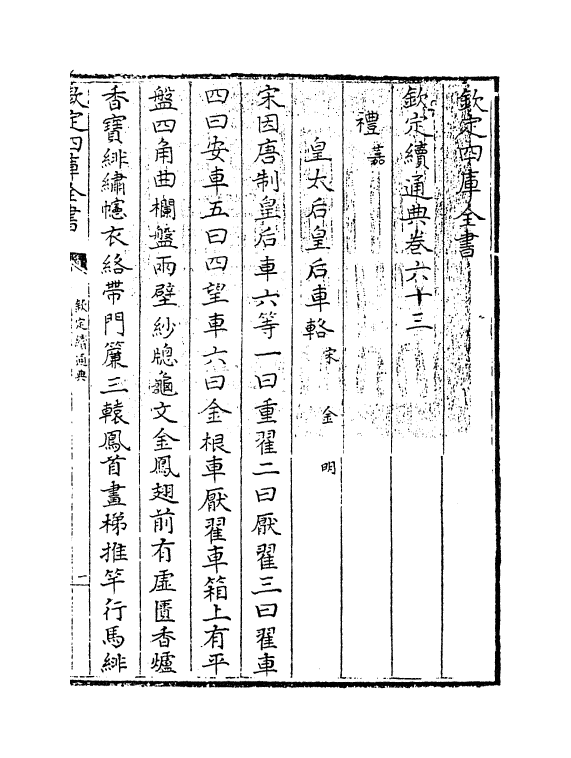 欽定四庫全書
欽定續通典卷六十三
禮嘉
皇太后皇后車輅宋 金 明
宋因唐制皇后車六等一曰重翟二曰厭翟三曰翟車
四曰安車五曰四望車六曰金根車厭翟車箱上有平
盤四角曲欄盤兩壁紗牕龜文金鳳翅前有虛匱香爐
香寶緋繡幰衣絡帶門簾三轅鳳首畫梯推竿行馬緋
欽定四庫全書
欽定續通典